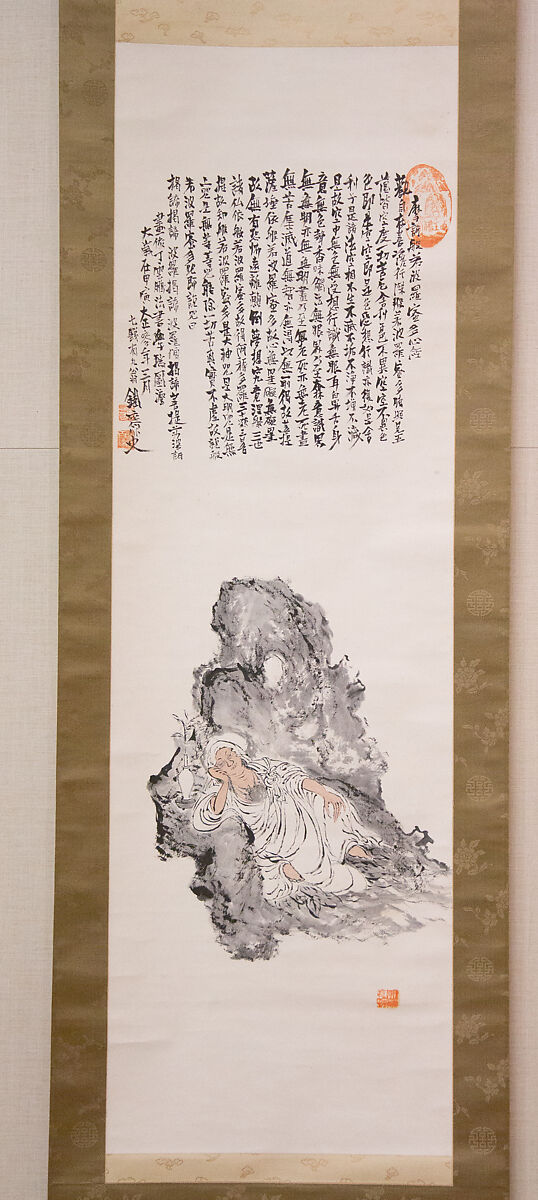 摩訶般若波羅蜜多心經
觀自在菩薩行深般若波羅蜜多時照見五
蘊皆空度一切苦厄舍利子色不異空空不異色
色即是空空即是色受想行識亦復如是舍
利子是諸法空相不生不滅不垢不淨不增不減
是故空中無色無受想行識無眼耳鼻舌身
意無色聲香味觸法無眼界乃至無意識界
無無明亦無無明盡乃至無老死亦無老死盡
無苦集滅道無智亦無得以無所得故菩提
薩埵依般若波羅蜜多故心無罣礙無罣礙
故無有恐怖遠離顛倒夢想究竟涅槃三世
諸仏依般若波羅蜜多故得阿耨多羅三藐三菩
提故知般若波羅蜜多是大神呪是大明呪是無
上呪是無等等呪能除一切苦真實不虛故說般
若波羅蜜多呪即說呪曰
揭諦揭諦波羅揭諦波羅僧揭諦菩提薩婆訶
畫依丁雲鵬法書學張瑞圖
大歲在甲寅大正三年三月
七有九翁鐵斎外史